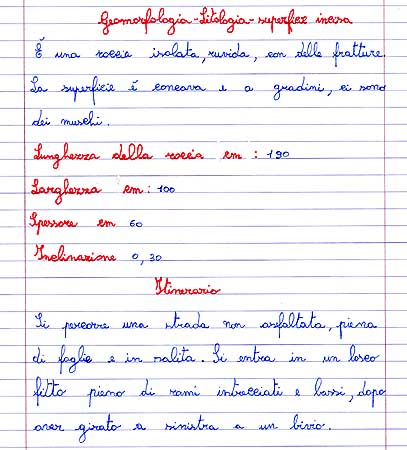 Geomorfologia - Litologia - superfice incisa
È una roccia isolata, ruvida, con delle fratture.
La superficie è concava e a gradini, ci sono
dei muschi.
Lunghezza della roccia cm : 190
Larghezza cm : 100
Spessore cm 60
Inclinazione 0,30
Itinerario
Si percorre una strada non asfaltata, piena
di foglie e in salita. Si entra in un bosco
fitto pieno di rami intrecciati e bassi, dopo
aver girato a sinistra a un bivio.